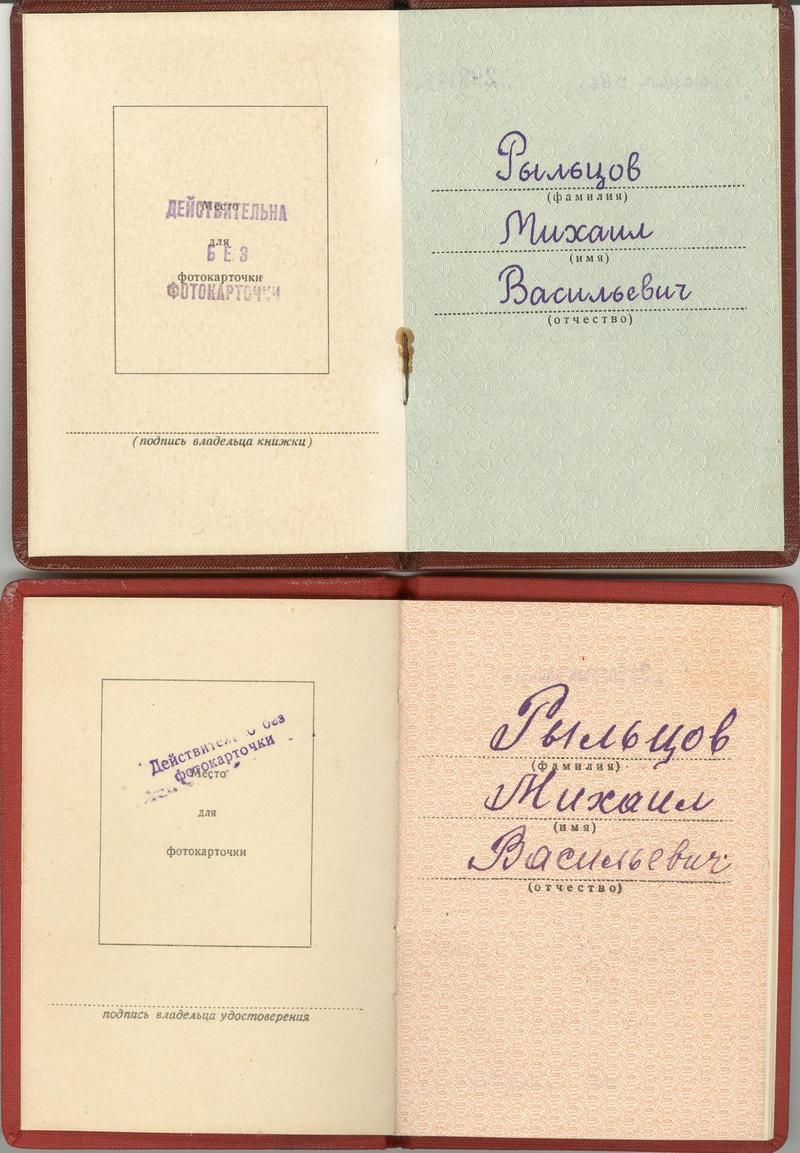 Место
для
фотокарточки
ДЕЙСТВИТЕЛЬНА
БЕЗ
ФОТОКАРТОЧКИ
(подпись владельца книжки)
Рыльцов
(фамилия)
Михаил
(имя)
Васильевич
(отчество)
без
фотокарточки
Место
для
фотокарточки
подпись владельца удостоверения
Рыльцов
(фамилия)
Михаил
(имя)
Васильевич
(отчество)